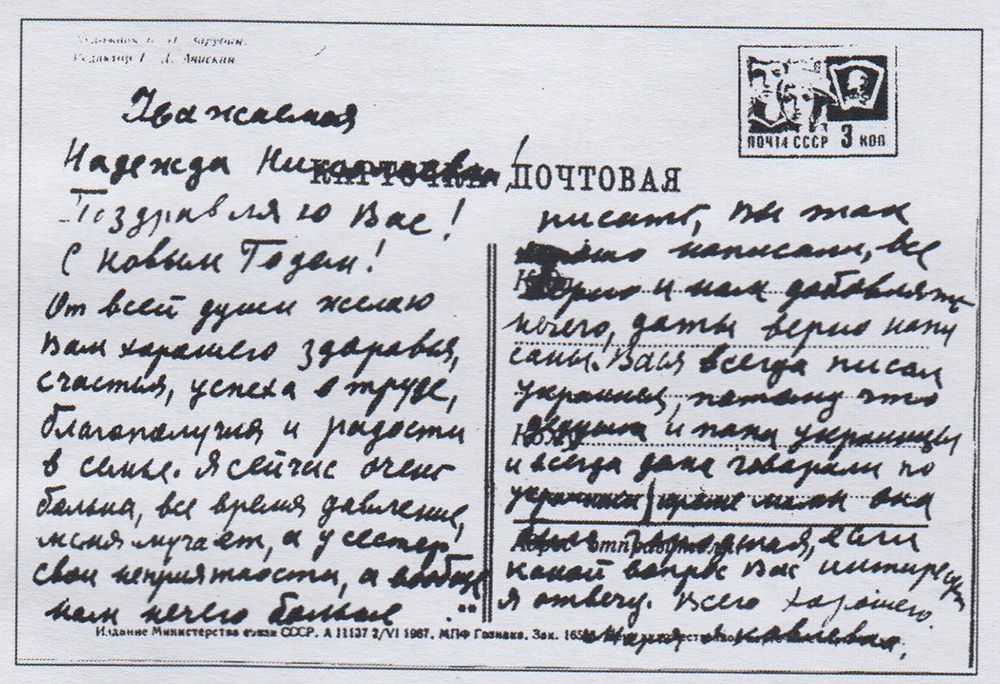 Художник В. И. Зарубин.
Редактор Г. Д. Анискин
ПОЧТА СССР 3 КОП
КАРТОЧКА ПОЧТОВАЯ
Уважаемая
Надежда Николаевна!
Поздравляю Вас!
С новым Годом!
От всей души желаю
Вам харошего здаравья,
счастья, успеха в труде,
благополучия и радости
в семье. Я сейчас очень
больна, все время давление,
меня мучает, а у сестер
свои неприятности, а вообще
нам нечего больше
писать, Вы так
хорошо написали, все
верно и нам добовлять
нечего, даты верно напи
саны. Вася всегда писал
украинец, потаму что
дедушка и папа украинцы
и всегда дома говарили по
украински кроме мамы она
была городская, если
какой вопрос Вас интиресует
я отвечу. Всего хорошего.
Мария Яковлевна.
Куда
Кому
Адрес отправителя
Издание Министерства связи СССР. А 11137 2/VI 1967. МПФ Гознака. Зак.